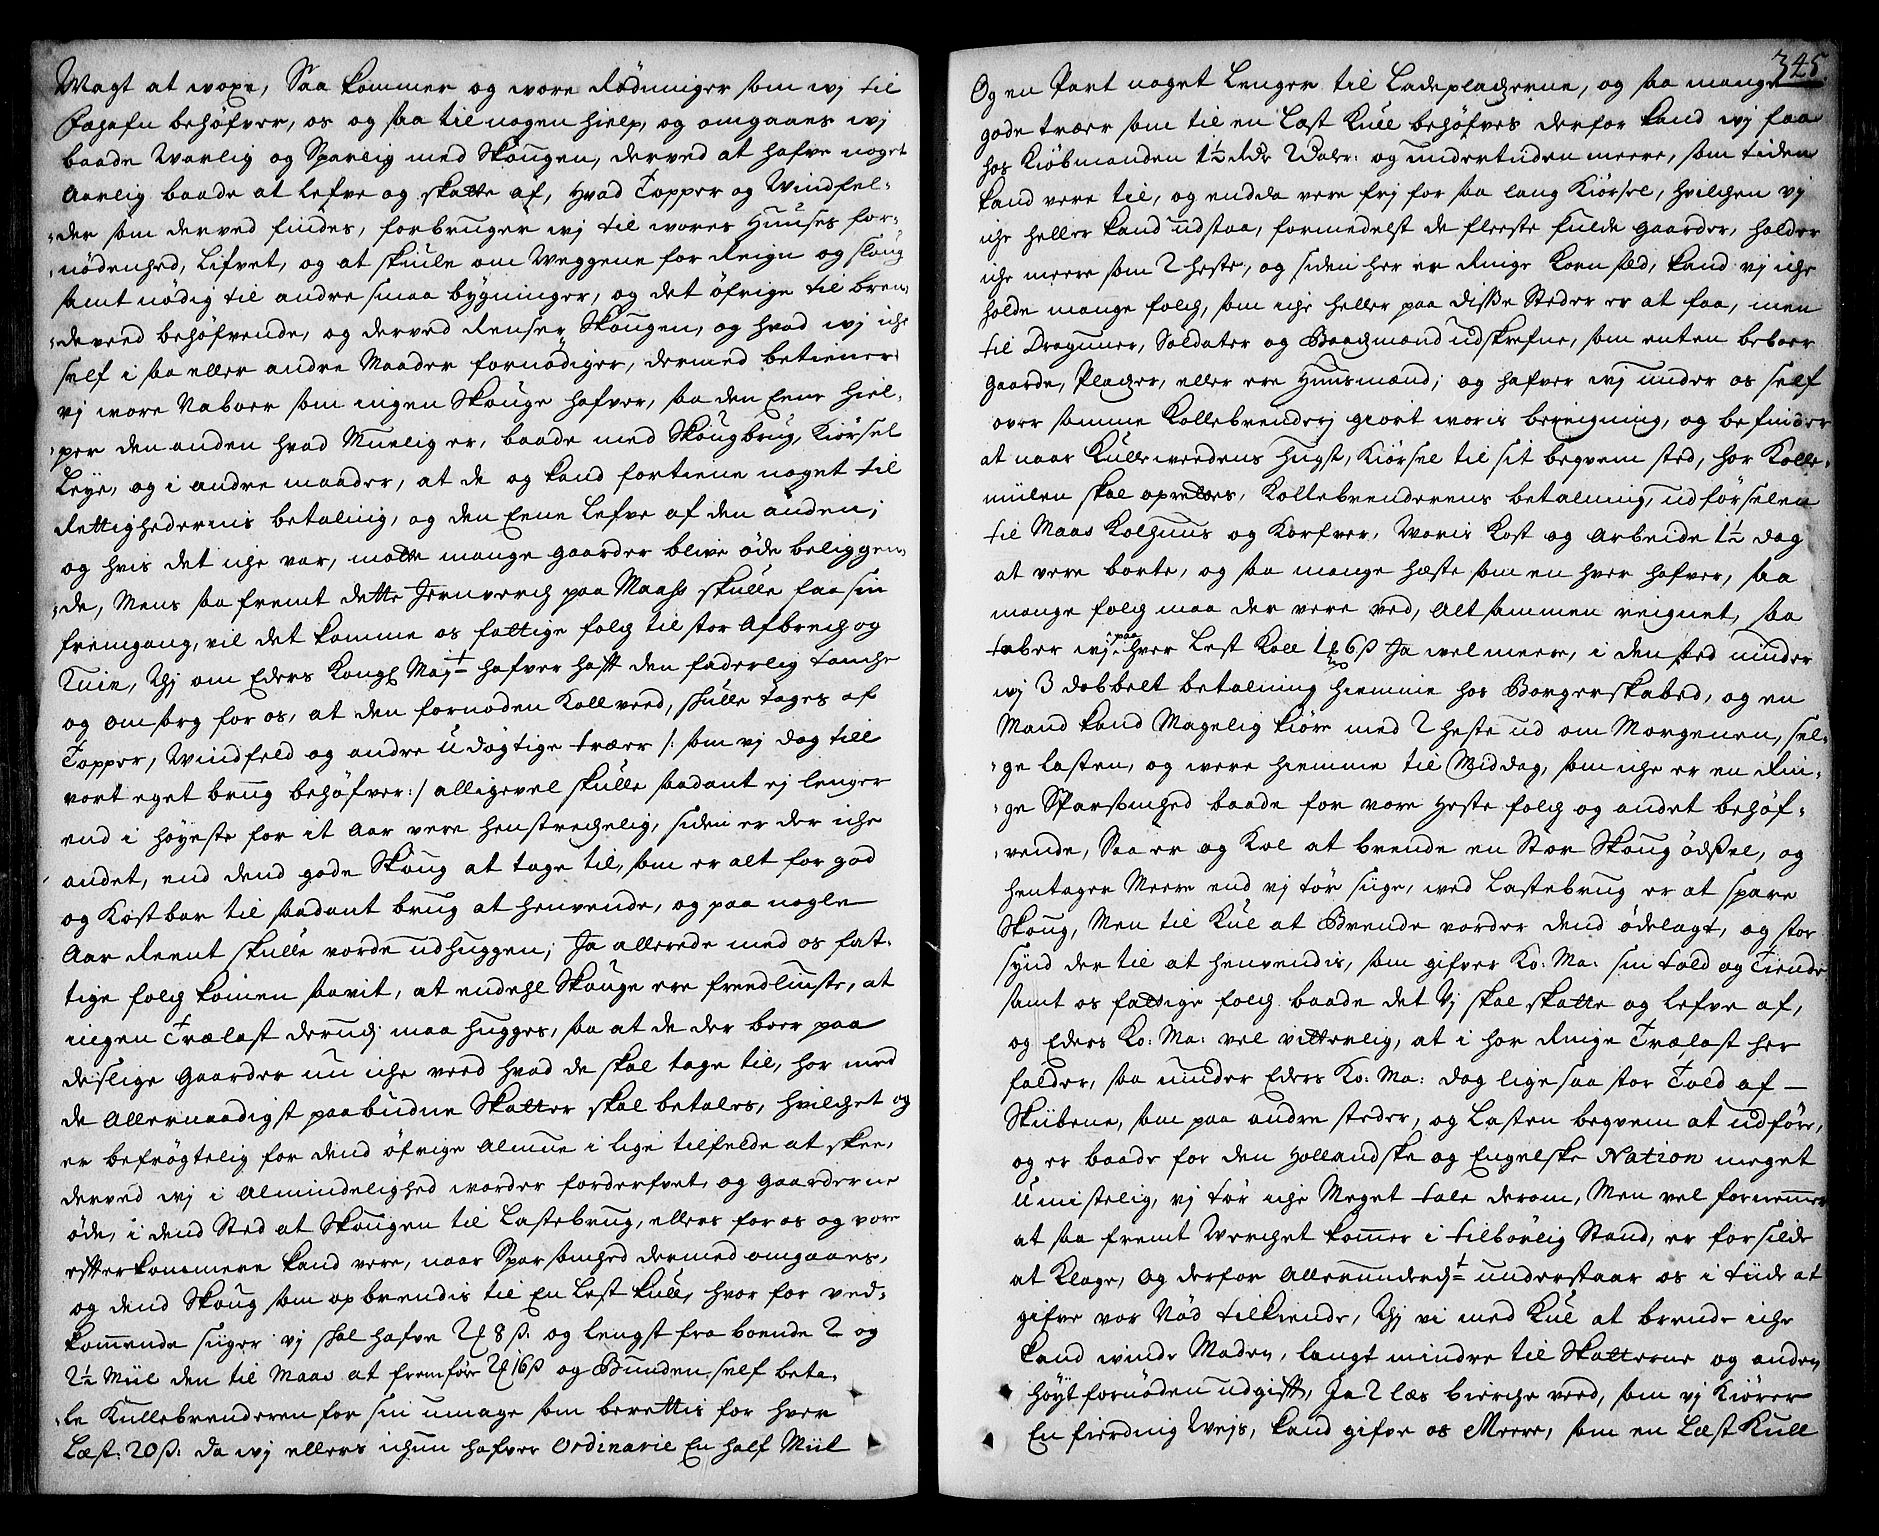 Wagt at woxe, Saa kommer og wore Rødninger som wj til
Fæhafn behøfver, os og saa til nogen hielp, og omgaaes wj
baade Warlig og Sparlig med Skougen, derved at hafve noget
Aarlig baade at lefve og skatte af, hvad Topper og Windfel-
der som derved findes, forbruger wj til wores Huuses for-
nødenhed, Lifvet, og at skiule om Weggene for Reign og Slong
samt nødig til andre smaa bygninger, og det øfrige til bren-
deveed behøfvende, og derved Renser Skougen, og hvad wj iche
self i saa eller andre Maader fornødiger, dermed betiener
vj wore Naboer som ingen Skouge hafver, saa den Eene hiel-
per den anden hvad Muelig er, baade med Skougbrug, Kiørsel
Leye, og i andre maader, at de og kand fortiene noget til
Rettighedernis betaling, og den Eene Lefve af den anden;
og hvis det iche var, motte mange gaarder blive øde beliggen-
de, Mens saa fremt dette Jernverch paa Maass skulle faa sin
fremgang, vil det komme os fattige folch til stor Afbrech og
Ruin, Thj om Eders Kongl Majt hafver hafft den faderlig tanche
og omsorg for os, at den fornøden Kollveed, skulle tages af
Topper, Windfeld og andre Udøgtige træer /: som vj dog till
vort eget brug behøfver :/ alligevel skulle saadant ej lenger
end i høyeste for it Aar vere henstrechelig, siden er der iche
andet, end dend gode Skoug at tage til, som er alt for god
og Kostbar til saadant brug at henvende, og paa nogle
Aar Reent skulle vorde udhuggen; Ja allerede med os fat-
tige folch komen saavit, at endehl Skouge ere freedliuste, at
ingen Trælast derudj maa hugges, saa at de der boer paa
deslige gaarder nu iche veed hvad de skal tage til, hor med
de Allernaadigst paabudne Skatter skal betales, hvilchet og
er befrøgtelig for dend øfrige Almue i lige tilfelde at skee,
derved wj i Almindelighed worder forderfvet, og gaarderne
øde, i dend Sted at Skougen til Lastebrug, ellers for os og vore
effterkommere kand vere, naar Sparsomhed dermed omgaaes,
og dend Skoug som opbrendis til En Lest kull, hvor for ved-
kommende siiger vj skal hafve 2 8 ß: og lengst fra boende 2 og
2½ Miil den til Maas at fremføre 2 16 ß og Bunden self beta-
le Kullebrenderen for sin umage som berettis for hver
Læst: 20 ß: da wj ellers ichun hafver Ordinarie En half Miil
345.
Og en Part noget Lenger til Ladepladzerne, og saa mange
gode træer som til en Læst Kull behøfves derfor kand wj faa
hos Kiøbmanden 1½ Rdr 2 Daler: og undertiden meere, som tiden
kand vere til, og endda vere frj for saa lang Kiørsel, hvilchen vj
iche heller kand udstaa, formedelst de fleeste fulde gaarder, holder
iche meere som 2 heste, og siden her er Ringe Korn Sæd, kand vj iche
holde mange folch, som iche heller paa disse Steder er at faa, men
til Draguner, Soldater og Baadsmænd udskrefne, som enten beboer
gaarde, Pladzer, eller ere Huusmænd; og hafver wj under os self
over samme Kollebrenderj giort woris bereigning, og befinder
at naar Kulleweedens hugst, Kiørsel til sit beqvem sted, hor Kolle-
miilen skal opreises, Kollebrenderens betaling, udførselen
til Maas Kolhuus og Korfver, Woris Kost og Arbeide 1½ dag
at vere borte, og saa mange hæste som en hver hafver, saa
mange folch maa der vere ved, Alt sammen reignet, saa
taber wj paa hver Lest Koll 1 6 ß Ja wel meere, i den sted ninder
wj 3 dobbelt betalning hiemme hos Borgerskabed, og en
Mand kand Magelig kiøre med 2 heste ud om Morgenen, sel-
ge lasten, og were hiemme til Middag, som iche er en Rin-
ge Sparsomhed baade for vore heste folch og andet behøf-
vende, Saa er og Kol at brende en Stor Skoug ødssel, og
hentager Meere end vj tør siige, wed Lastebrug er at spare
Skoug, Men til Kul at Brende vorder dend ødelagt, og stor
synd der til at henvendis, som gifver Ko: Ma: sin told og Tiende
samt os fattige folch baade det Vj skal skatte og lefve af,
og Eders Ko: Ma: vel vitterlig, at i hor Ringe Trælast her
falder, saa ninder Eders Ko: Ma: dog lige saa stor Told af
Skibene, som paa andre steder, og Lasten beqvem at udføre,
og er baade for den Hollandske og Engelske Nation meget
Umistelig, vj tør iche Meget tale derom, Men vel fornemmer
at saa fremt Werchet kommer i tilbørlig Stand, er for silde
at Klage, Og derfor Allerunderdt understaar os i tiide at
gifve vor Nød tilkiende, Thj vi med Kul at brende iche
kand winde Maden, langt mindre til Skatterne og anden
høyt fornøden udgifft, Ja 2 læs bierche veed, som vj Kiører
En fierding Weys, kand gifve os Meere, som en Læst Kull